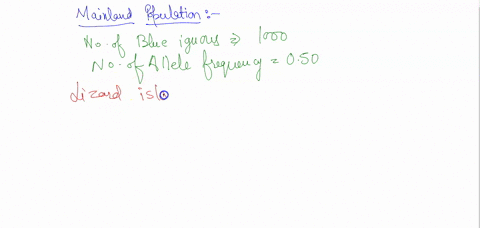 Mainland Population:-
No. of Blue iguans ⇒ 1000
No. of Allele frequency = 0.50
Lizard isl